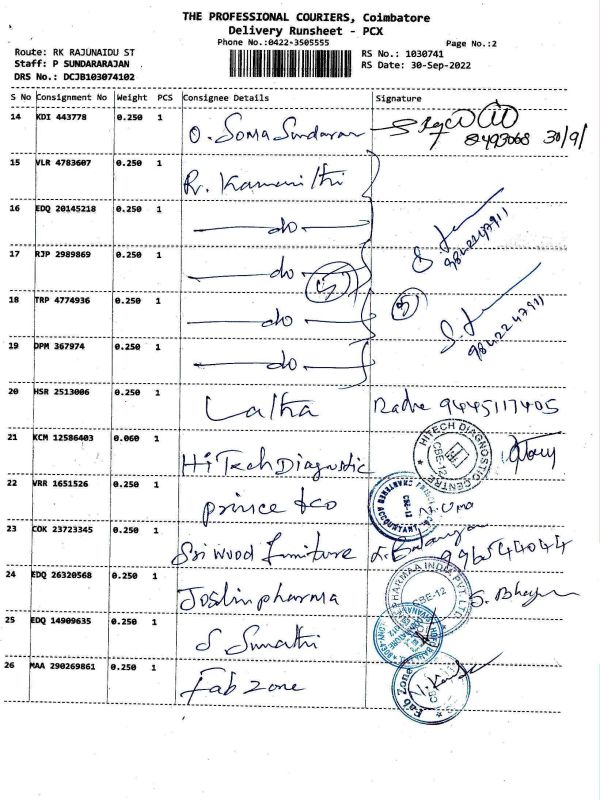 THE PROFESSIONAL COURIERS, Coimbatore
Delivery Runsheet - PCX
Phone No.:0422-3505555
Page No.:2
Route: RK RAJUNAIDU ST
RS No.: 1030741
Staff: P SUNDARARAJAN
RS Date: 30-Sep-2022
DRS No.: DCJB103074102
S No Consignment No Weight PCS Consignee Details Signature
14 KDI 443778 0.250 1 O. Soma Sundaram
30/9/
15 VLR 4783607 0.250 1
16 EDQ 20145218 0.250 1 do
17 RJP 2989869 0.250 1 do 5 9842247911
18 TRP 4774936 0.250 1 do 5 9842247911
19 DPM 367974 0.250 1 do
20 HSR 2513006 0.250 1 Latha 9445117405
21 KCM 12586403 0.060 1 HiTech Diagnostic HITECH DIAGNOSTIC CENTRE CBE-12
22 VRR 1651526 0.250 1 prince & co ACCOUNTANT CBE-12 Uma
23 COK 23723345 0.250 1 Sri wood Furniture
24 EDQ 26320568 0.250 1 Joslin pharma PHARMAA INDIA PVT. LTD. CBE-12
25 EDQ 14909635 0.250 1 S Sumathi
26 MAA 290269861 0.250 1 Fab Zone Fab Zone